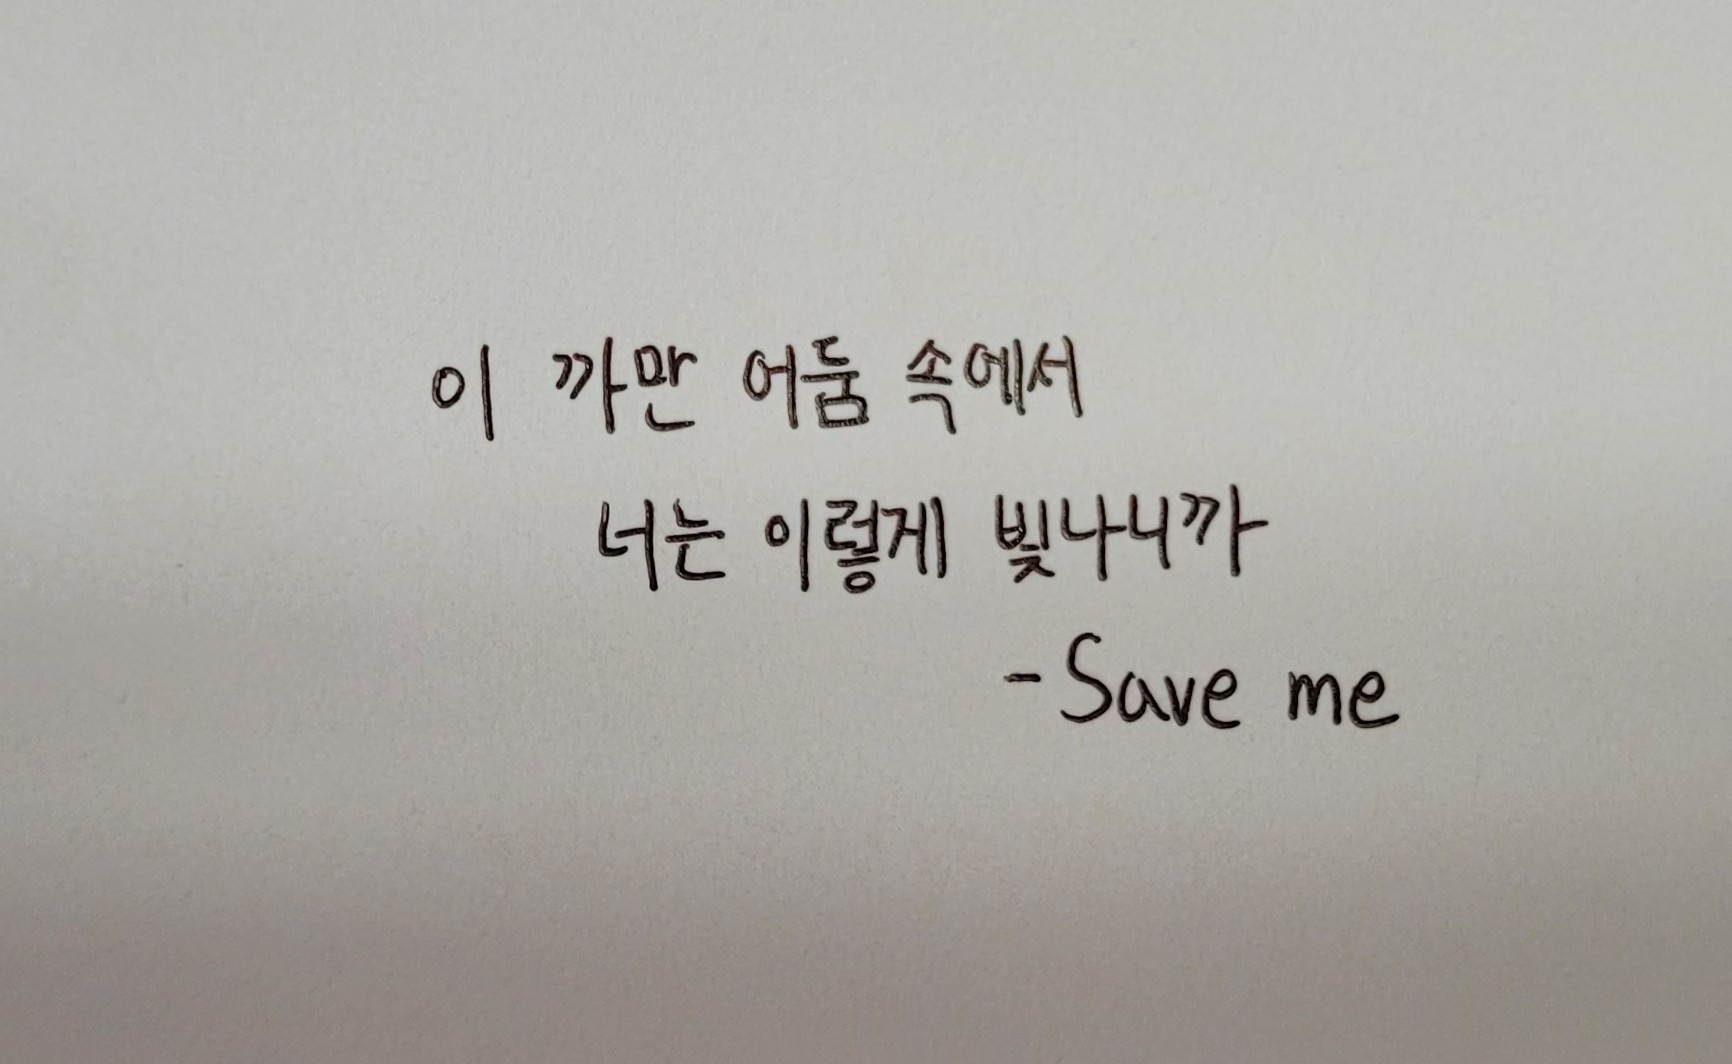 이 까만 어둠 속에서
너는 이렇게 빛나니까
-Save me